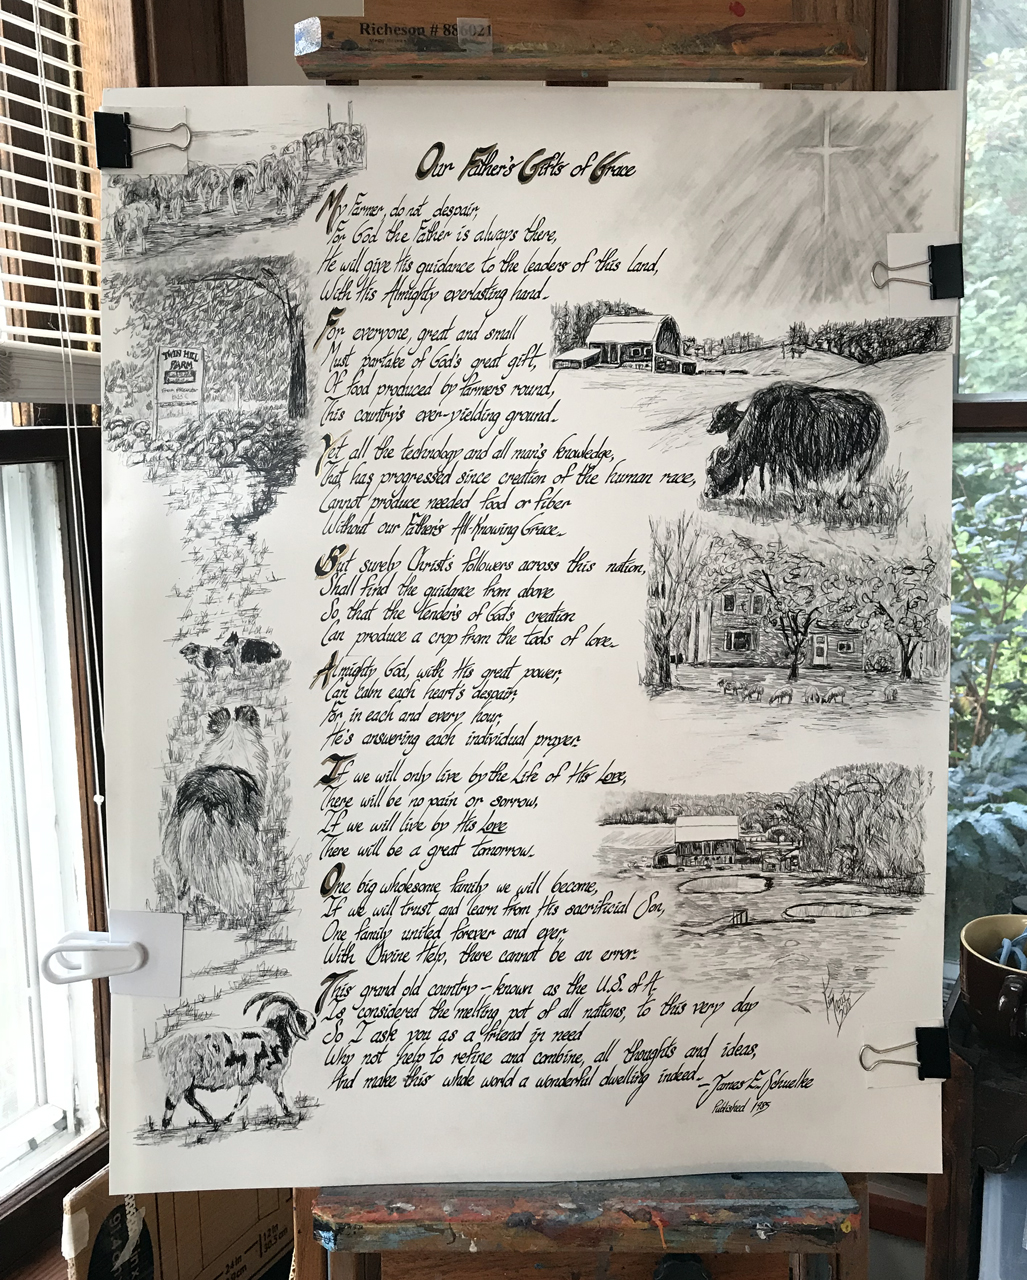 Richeson # 886021
Our Father's Gifts of Grace
My Farmer, do not despair,
For God the Father is always there,
He will give His guidance to the leaders of this land,
With His Almighty everlasting hand.
For everyone, great and small
Must partake of God's great gift,
Of food produced by farmers round,
This country's ever-yielding ground.
Yet all the technology and all man's knowledge,
That has progressed since creation of the human race,
Cannot produce needed food or fiber
Without our Father's All-Knowing Grace.
But surely Christ's followers across this nation,
Shall find the guidance from above
So that the tenders of God's creation
Can produce a crop from the tools of love.
Almighty God, with His great power,
Can calm each heart's despair,
For in each and every hour,
He's answering each individual prayer.
If we will only live by the Life of His Love,
There will be no pain or sorrow,
If we will live by His Love
There will be a great tomorrow.
One big wholesome family we will become,
If we will trust and learn from His sacrificial Son,
One family united forever and ever,
With Divine Help, there cannot be an error.
This grand old country – known as the U.S. of A.
Is considered the melting pot of all nations, to this very day
So I ask you as a friend in need
Why not help to refine and combine, all thoughts and ideas,
And make this whole world a wonderful dwelling indeed.
– James E. Schuelke
Published 1985
TWIN HILL
FARM